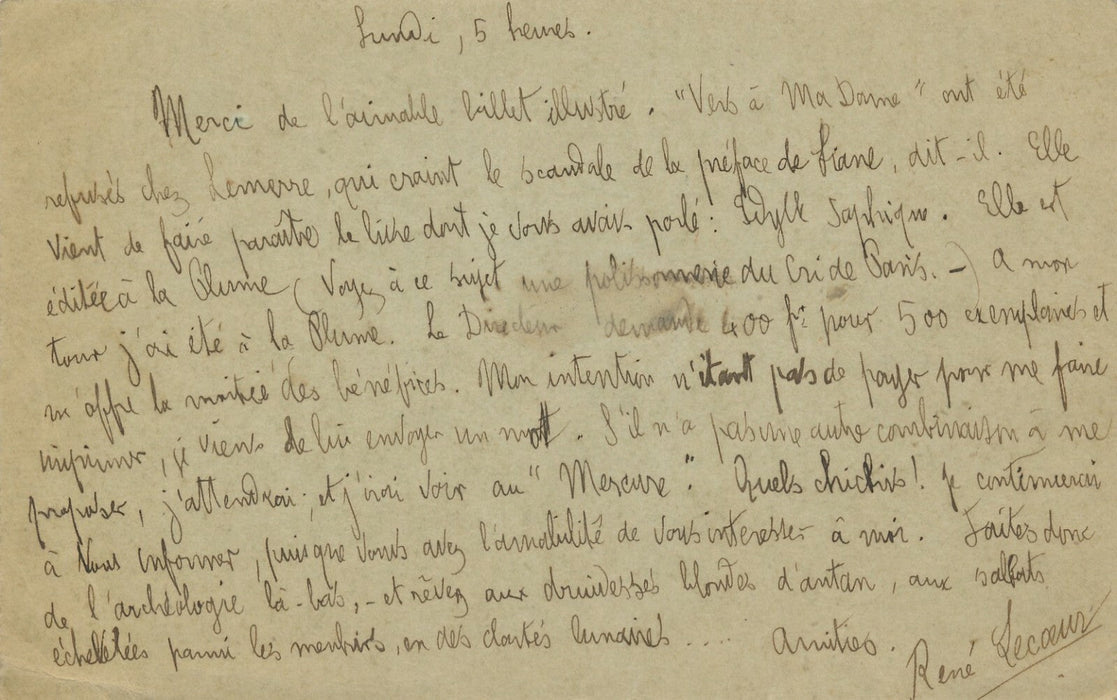 Lundi, 5 heures.
Merci de l'aimable billet illustré. "Vers à Ma Dame" ont été
refusés chez Lemerre, qui craint le scandale de la préface de Liane, dit-il. Elle
vient de faire paraître le livre dont je vous avais parlé: Idylle Saphique. Elle est
éditée à la Plume (Voyez à ce sujet une polissonnerie du Cri de Paris. -) A mon
tour j'ai été à la Plume. Le Directeur demande 400 frs pour 500 exemplaires et
m'offre la moitié des bénéfices. Mon intention n'étant pas de payer pour me faire
imprimer, je viens de lui envoyer un mot. S'il n'a pas une autre combinaison à me
proposer, j'attendrai; et j'irai voir au "Mercure". Quels chichis! Je continuerai
à vous informer, puisque vous avez l'amabilité de vous interesser à moi. Faites donc
de l'archéologie là-bas, - et rêvez aux druidesses blondes d'antan, aux
échevelées parmi les menhirs, en des clartés lunaires .... Amitiés.
René Lecoeur